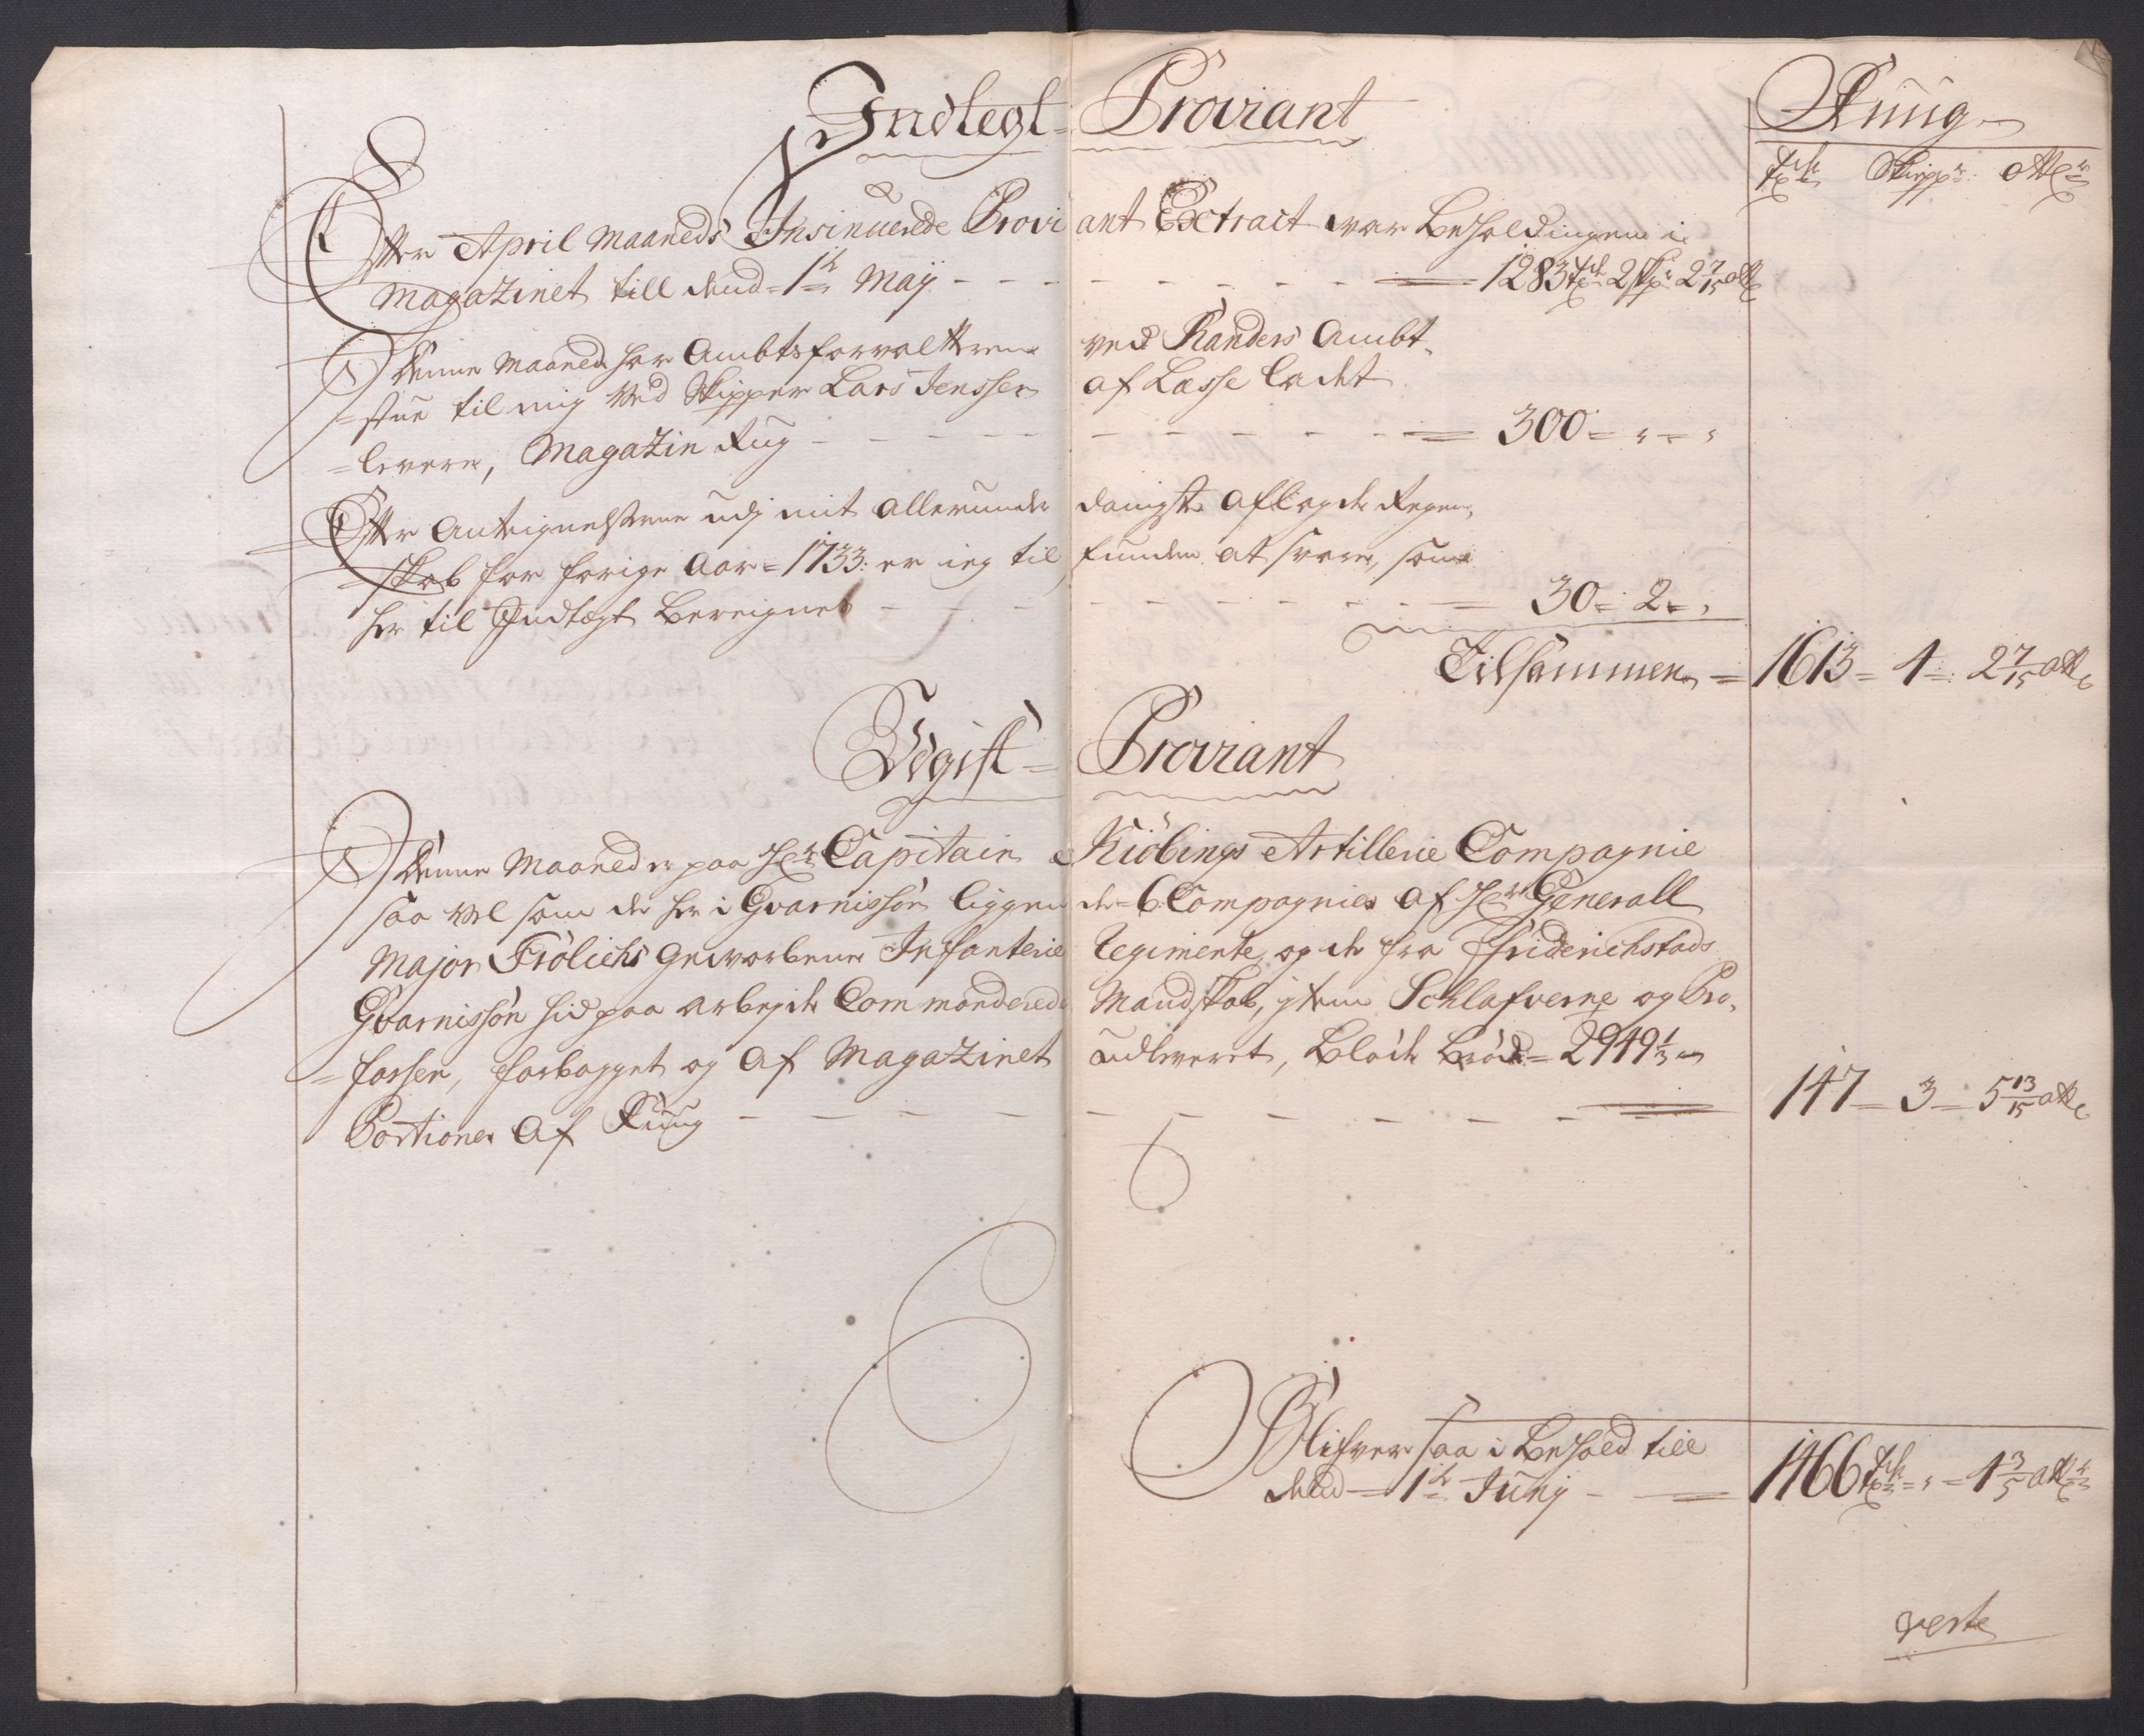 Indtegt = Proviant
Ruug
tdr Skipp: ottr
Efter April Maaneds Insinuerede Proviant Extract var Beholdingen i
Magazinet till dend = 1te Maÿ - - - = 1283 tdr 2 skpr 2 7/15 ott
I denne Maaned har Ambtsforvalteren ved Randers Ambt
til mig ved Skipper Lars Jenssen af Læsse ladet
levere, Magazin Rug - - - = 300 = " = "
Efter Antegnelserne udj mit allerunderdanigste aflagde Regen-
skab for forige Aar = 1733: er ieg tilfunden at svare, som
her til Indtægt Bereignes - - - = 30 = 2 = "
Tilsammen = 1613 = 4 = 2 7/15 ott
Udgift = Proviant
I denne Maaned er paa Hr Capitain Kiöbings Artillerie Compagnie
saa vel som de her i Gvarnisson liggende = 6 Compagnier af Hr Generall
Major Frölichs Gevorbene Infanterie Regimente, og de fra Friderichstads
Gvarnisson hid paa arbejde Commanderede Mandskab, jtem Schlafverne og Pro-
=fossen, forbagget og af Magazinet udleveret, Bløde Brød = 2949 1/3
Portioner af Ruug - - - 147 = 3 = 5 13/15 ott
Blifver saa i Behold till
dend = 1te Junj - = 1466 tdr = " = 4 3/5 ottr
verte